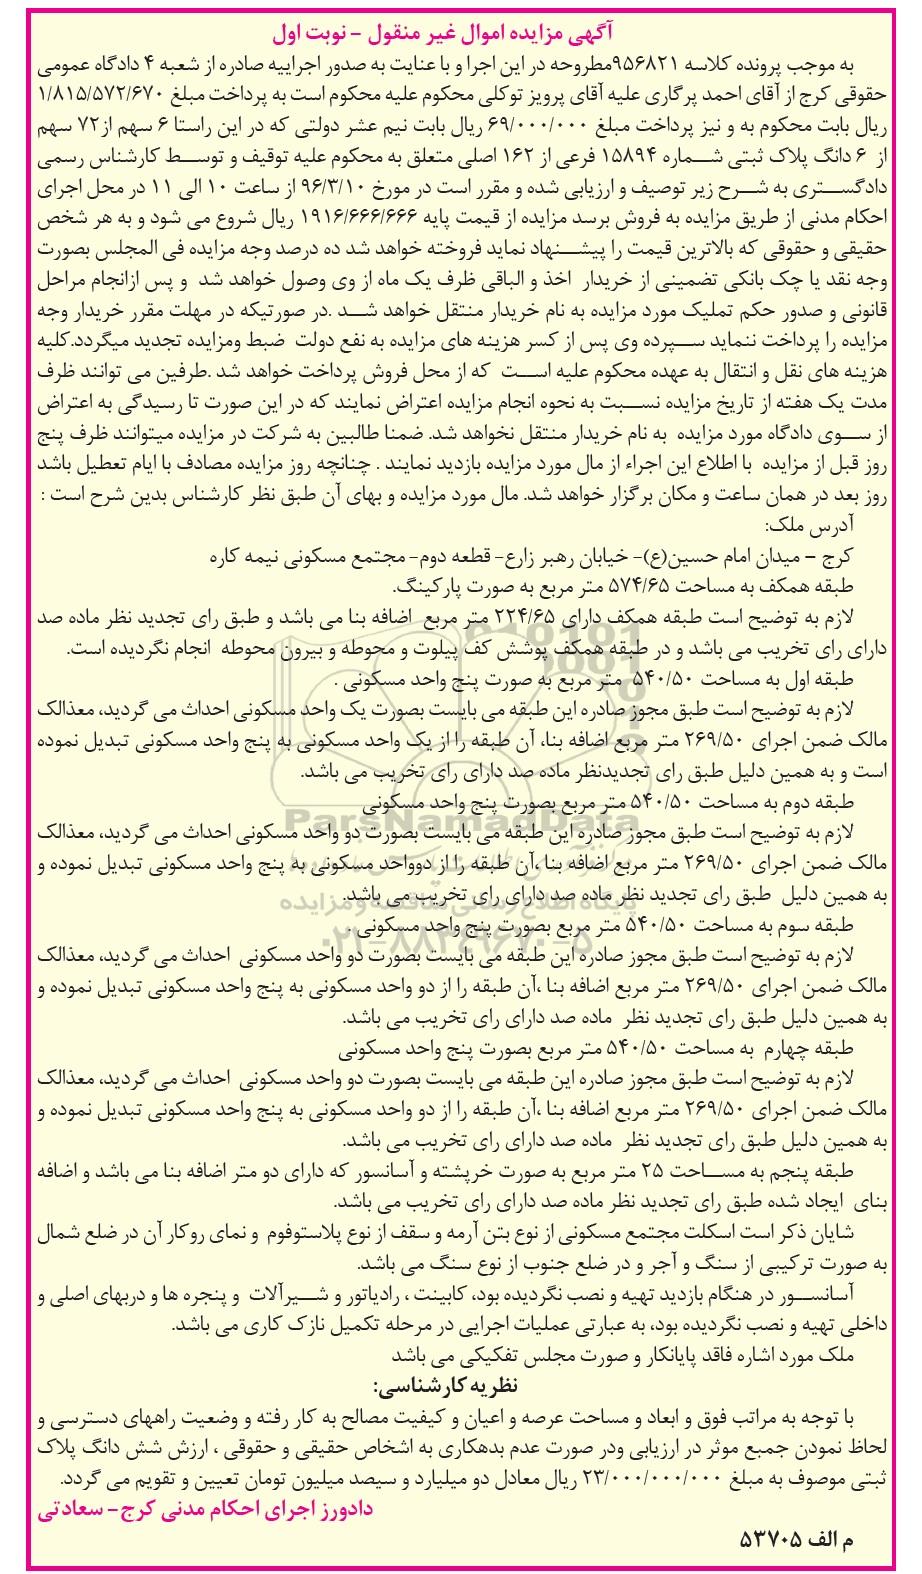 آگهی مزایده اموال غیر منقول - نوبت اول
به موجب پرونده کلاسه ۹۵۶۸۲۱مطروحه در این اجرا و با عنایت به صدور اجراییه صادره از شعبه ۴ دادگاه عمومی
حقوقی کرج از آقای احمد پرگاری علیه آقای پرویز توکلی محکوم علیه محکوم است به پرداخت مبلغ ۱/۸۱۵/۵۷۲/۶۷۰
ریال بابت محکوم به و نیز پرداخت مبلغ ۶۹/۰۰۰/۰۰۰ ریال بابت نیم عشر دولتی که در این راستا ۶ سهم از۷۲ سهم
از ۶ دانگ پلاک ثبتی شماره ۱۵۸۹۴ فرعی از ۱۶۲ اصلی متعلق به محکوم علیه توقیف و توسط کارشناس رسمی
دادگستری به شرح زیر توصیف و ارزیابی شده و مقرر است در مورخ ۹۶/۳/۱۰ از ساعت ۱۰ الی ۱۱ در محل اجرای
احکام مدنی از طریق مزایده به فروش برسد مزایده از قیمت پایه ۱۹۱۶/۶۶۶/۶۶۶ ریال شروع می شود و به هر شخص
حقیقی و حقوقی که بالاترین قیمت را پیشنهاد نماید فروخته خواهد شد ده درصد وجه مزایده فی المجلس بصورت
وجه نقد یا چک بانکی تضمینی از خریدار اخذ و الباقی ظرف یک ماه از وی وصول خواهد شد و پس ازانجام مراحل
قانونی و صدور حکم تملیک مورد مزایده به نام خریدار منتقل خواهد شد .در صورتیکه در مهلت مقرر خریدار وجه
مزایده را پرداخت ننماید سپرده وی پس از کسر هزینه های مزایده به نفع دولت ضبط ومزایده تجدید میگردد.کلیه
هزینه های نقل و انتقال به عهده محکوم علیه است که از محل فروش پرداخت خواهد شد .طرفین می توانند ظرف
مدت یک هفته از تاریخ مزایده نسبت به نحوه انجام مزایده اعتراض نمایند که در این صورت تا رسیدگی به اعتراض
از سوی دادگاه مورد مزایده به نام خریدار منتقل نخواهد شد. ضمنا طالبین به شرکت در مزایده میتوانند ظرف پنج
روز قبل از مزایده با اطلاع این اجراء از مال مورد مزایده بازدید نمایند . چنانچه روز مزایده مصادف با ایام تعطیل باشد
روز بعد در همان ساعت و مکان برگزار خواهد شد. مال مورد مزایده و بهای آن طبق نظر کارشناس بدین شرح است :
آدرس ملک:
کرج – میدان امام حسین(ع)- خیابان رهبر زارع- قطعه دوم- مجتمع مسکونی نیمه کاره
طبقه همکف به مساحت ۵۷۴/۶۵ متر مربع به صورت پارکینگ.
لازم به توضیح است طبقه همکف دارای ۲۲۴/۶۵ متر مربع اضافه بنا می باشد و طبق رای تجدید نظر ماده صد
دارای رای تخریب می باشد و در طبقه همکف پوشش کف پیلوت و محوطه و بیرون محوطه انجام نگردیده است.
طبقه اول به مساحت ۵۴۰/۵۰ متر مربع به صورت پنج واحد مسکونی .
لازم به توضیح است طبق مجوز صادره این طبقه می بایست بصورت یک واحد مسکونی احداث می گردید، معذالک
مالک ضمن اجرای ۲۶۹/۵۰ متر مربع اضافه بنا، آن طبقه را از یک واحد مسکونی به پنج واحد مسکونی تبدیل نموده
است و به همین دلیل طبق رای تجدیدنظر ماده صد دارای رای تخریب می باشد.
طبقه دوم به مساحت ۵۴۰/۵۰ متر مربع بصورت پنج واحد مسکونی
ParsNamadData
لازم به توضیح است طبق مجوز صادره این طبقه می بایست بصورت دو واحد مسکونی احداث می گردید، معذالک
مالک ضمن اجرای ۲۶۹/۵۰ متر مربع اضافه بنا،آن طبقه را از دوواحد مسکونی به پنج واحد مسکونی تبدیل نموده و
به همین دلیل طبق رای تجدید نظر ماده صد دارای رای تخریب می باشد.
پایگاه اطلاع رسانی مناقصه و مزایده
طبقه سوم به مساحت ۵۴۰/۵۰ متر مربع بصورت پنج واحد مسکونی .
۰۲۱-۸۸۳۴۹۶۷۰-۵
لازم به توضیح است طبق مجوز صادره این طبقه می بایست بصورت دو واحد مسکونی احداث می گردید، معذالک
مالک ضمن اجرای ۲۶۹/۵۰ متر مربع اضافه بنا ،آن طبقه را از دو واحد مسکونی به پنج واحد مسکونی تبدیل نموده و
به همین دلیل طبق رای تجدید نظر ماده صد دارای رای تخریب می باشد.
طبقه چهارم به مساحت ۵۴۰/۵۰ متر مربع بصورت پنج واحد مسکونی
لازم به توضیح است طبق مجوز صادره این طبقه می بایست بصورت دو واحد مسکونی احداث می گردید، معذالک
مالک ضمن اجرای ۲۶۹/۵۰ متر مربع اضافه بنا ،آن طبقه را از دو واحد مسکونی به پنج واحد مسکونی تبدیل نموده و
به همین دلیل طبق رای تجدید نظر ماده صد دارای رای تخریب می باشد.
طبقه پنجم به مساحت ۲۵ متر مربع به صورت خرپشته و آسانسور که دارای دو متر اضافه بنا می باشد و اضافه
بنای ایجاد شده طبق رای تجدید نظر ماده صد دارای رای تخریب می باشد.
شایان ذکر است اسکلت مجتمع مسکونی از نوع بتن آرمه و سقف از نوع پلاستوفوم و نمای روکار آن در ضلع شمال
به صورت ترکیبی از سنگ و آجر و در ضلع جنوب از نوع سنگ می باشد.
آسانسور در هنگام بازدید تهیه و نصب نگردیده بود، کابینت ، رادیاتور و شیرآلات و پنجره ها و دربهای اصلی و
داخلی تهیه و نصب نگردیده بود، به عبارتی عملیات اجرایی در مرحله تکمیل نازک کاری می باشد.
ملک مورد اشاره فاقد پایانکار و صورت مجلس تفکیکی می باشد
نظریه کارشناسی:
با توجه به مراتب فوق و ابعاد و مساحت عرصه و اعیان و کیفیت مصالح به کار رفته و وضعیت راههای دسترسی و
لحاظ نمودن جمیع موثر در ارزیابی ودر صورت عدم بدهکاری به اشخاص حقیقی و حقوقی ، ارزش شش دانگ پلاک
ثبتی موصوف به مبلغ ۲۳/۰۰۰/۰۰۰/۰۰۰ ریال معادل دو میلیارد و سیصد میلیون تومان تعیین و تقویم می گردد.
دادورز اجرای احکام مدنی کرج- سعادتی
م الف ۵۳۷۰۵